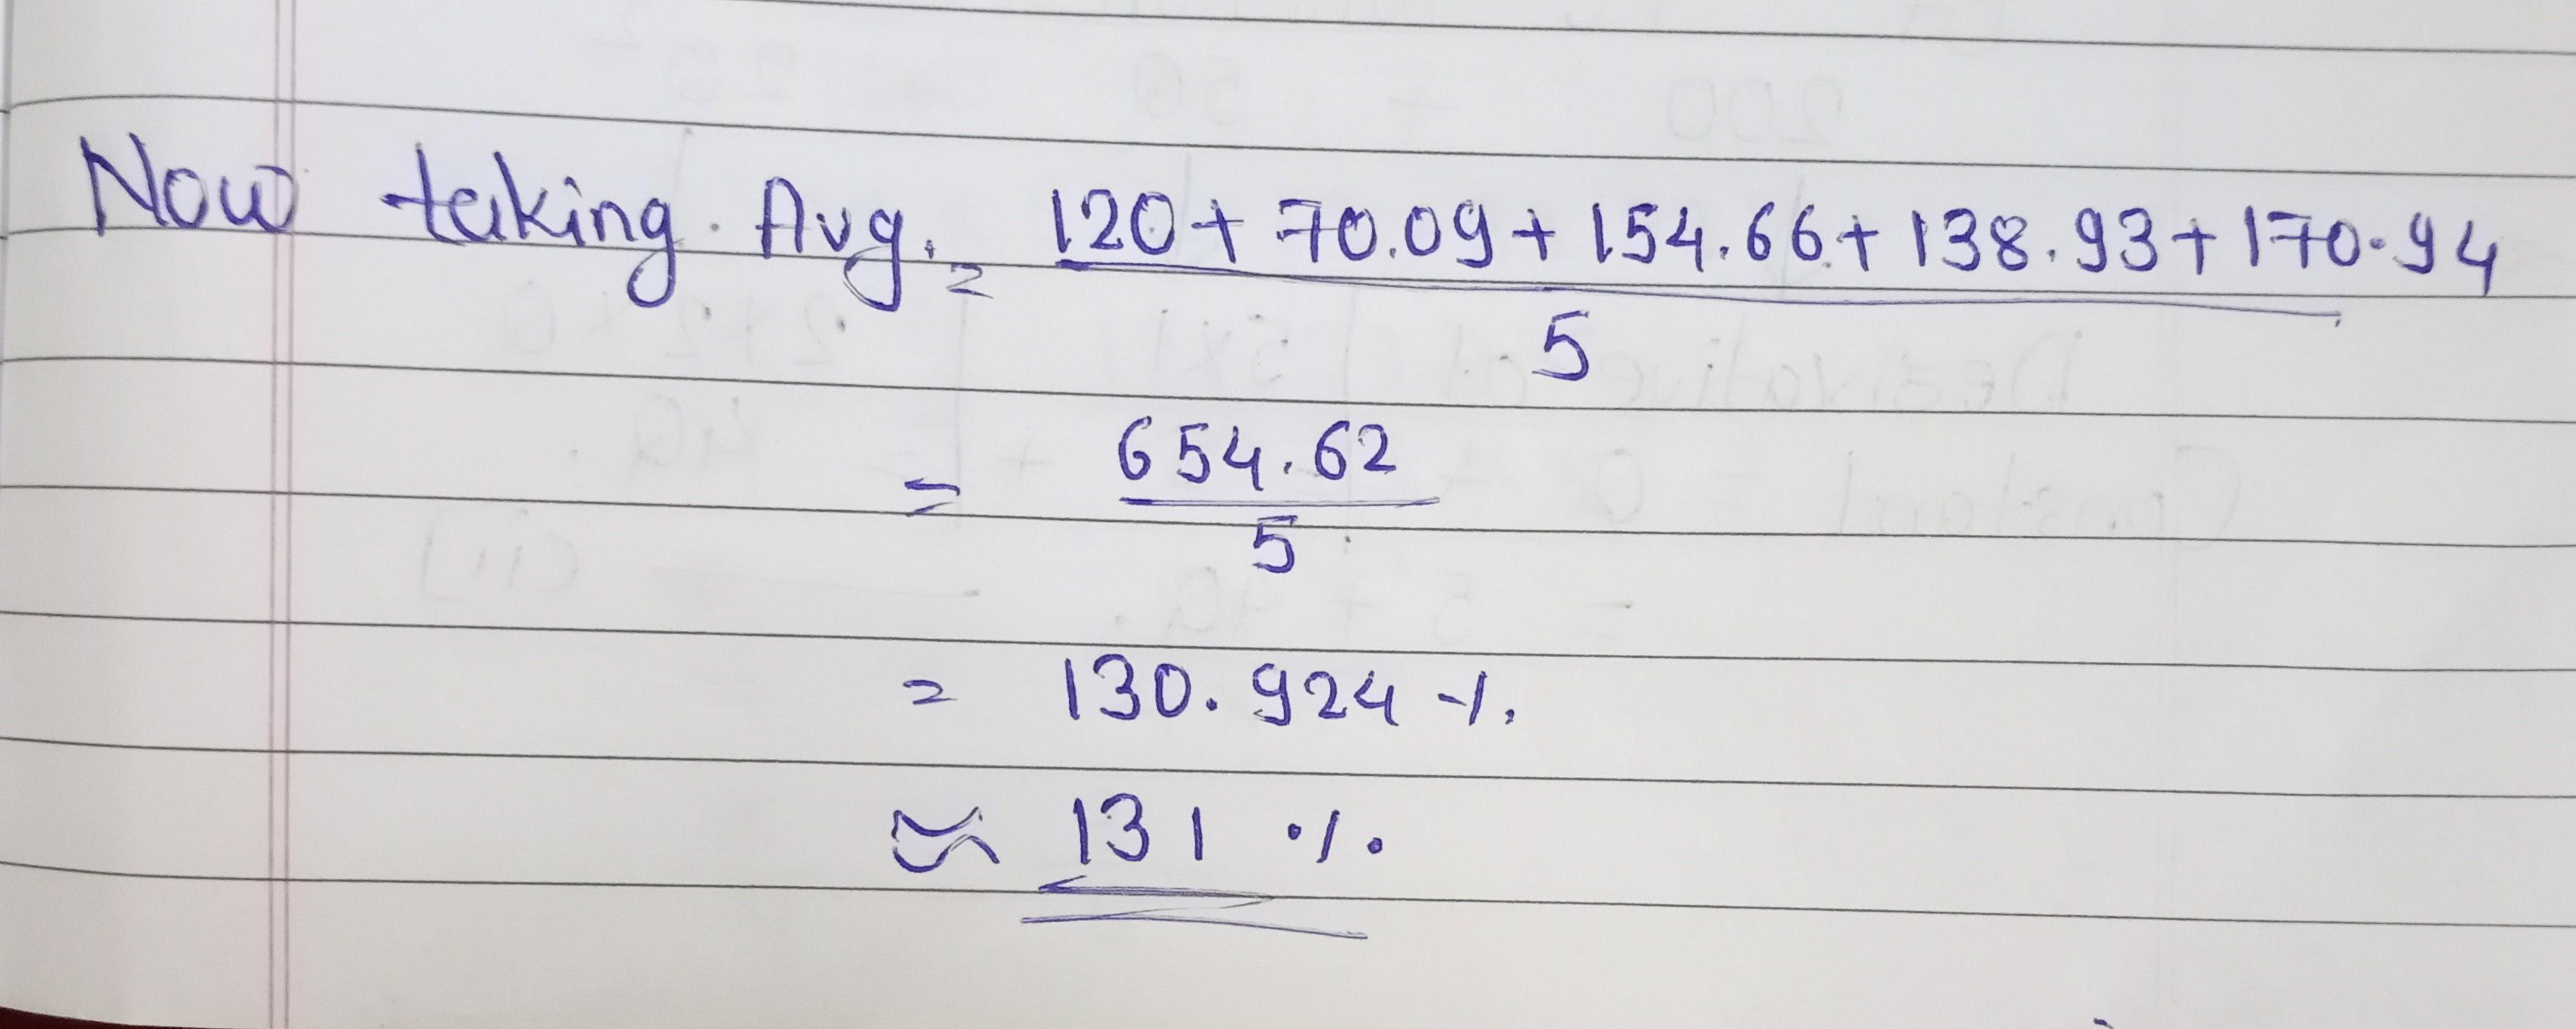 Now taking. Avg. = 120 + 70.09 + 154.66 + 138.93 + 170.94
5
= 654.62
5
= 130.924 %.
≈ 131 %